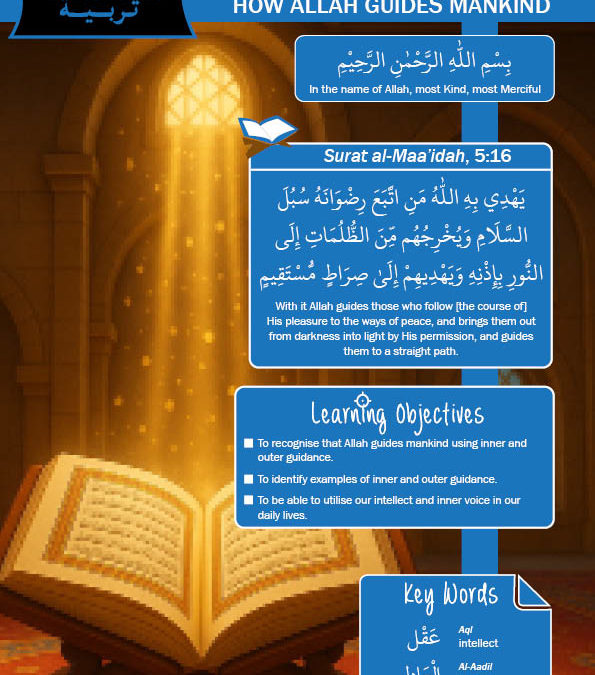 تربية
HOW ALLAH GUIDES MANKIND
بِسْمِ اللَّهِ الرَّحْمَٰنِ الرَّحِيْمِ
In the name of Allah, most Kind, most Merciful
Surat al-Maa'idah, 5:16
يَهْدِي بِهِ اللَّهُ مَنِ اتَّبَعَ رِضْوَانَهُ سُبُلَ
السَّلَامِ وَيُخْرِجُهُم مِّنَ الظُّلُمَاتِ إِلَى
النُّورِ بِإِذْنِهِ وَيَهْدِيهِمْ إِلَىٰ صِرَاطٍ مُّسْتَقِيمٍ
With it Allah guides those who follow [the course of]
His pleasure to the ways of peace, and brings them out
from darkness into light by His permission, and guides
them to a straight path.
Learning Objectives
To recognise that Allah guides mankind using inner and
outer guidance.
To identify examples of inner and outer guidance.
To be able to utilise our intellect and inner voice in our
daily lives.
Key Words
عَقْل
Aql
intellect
Al-Aadil